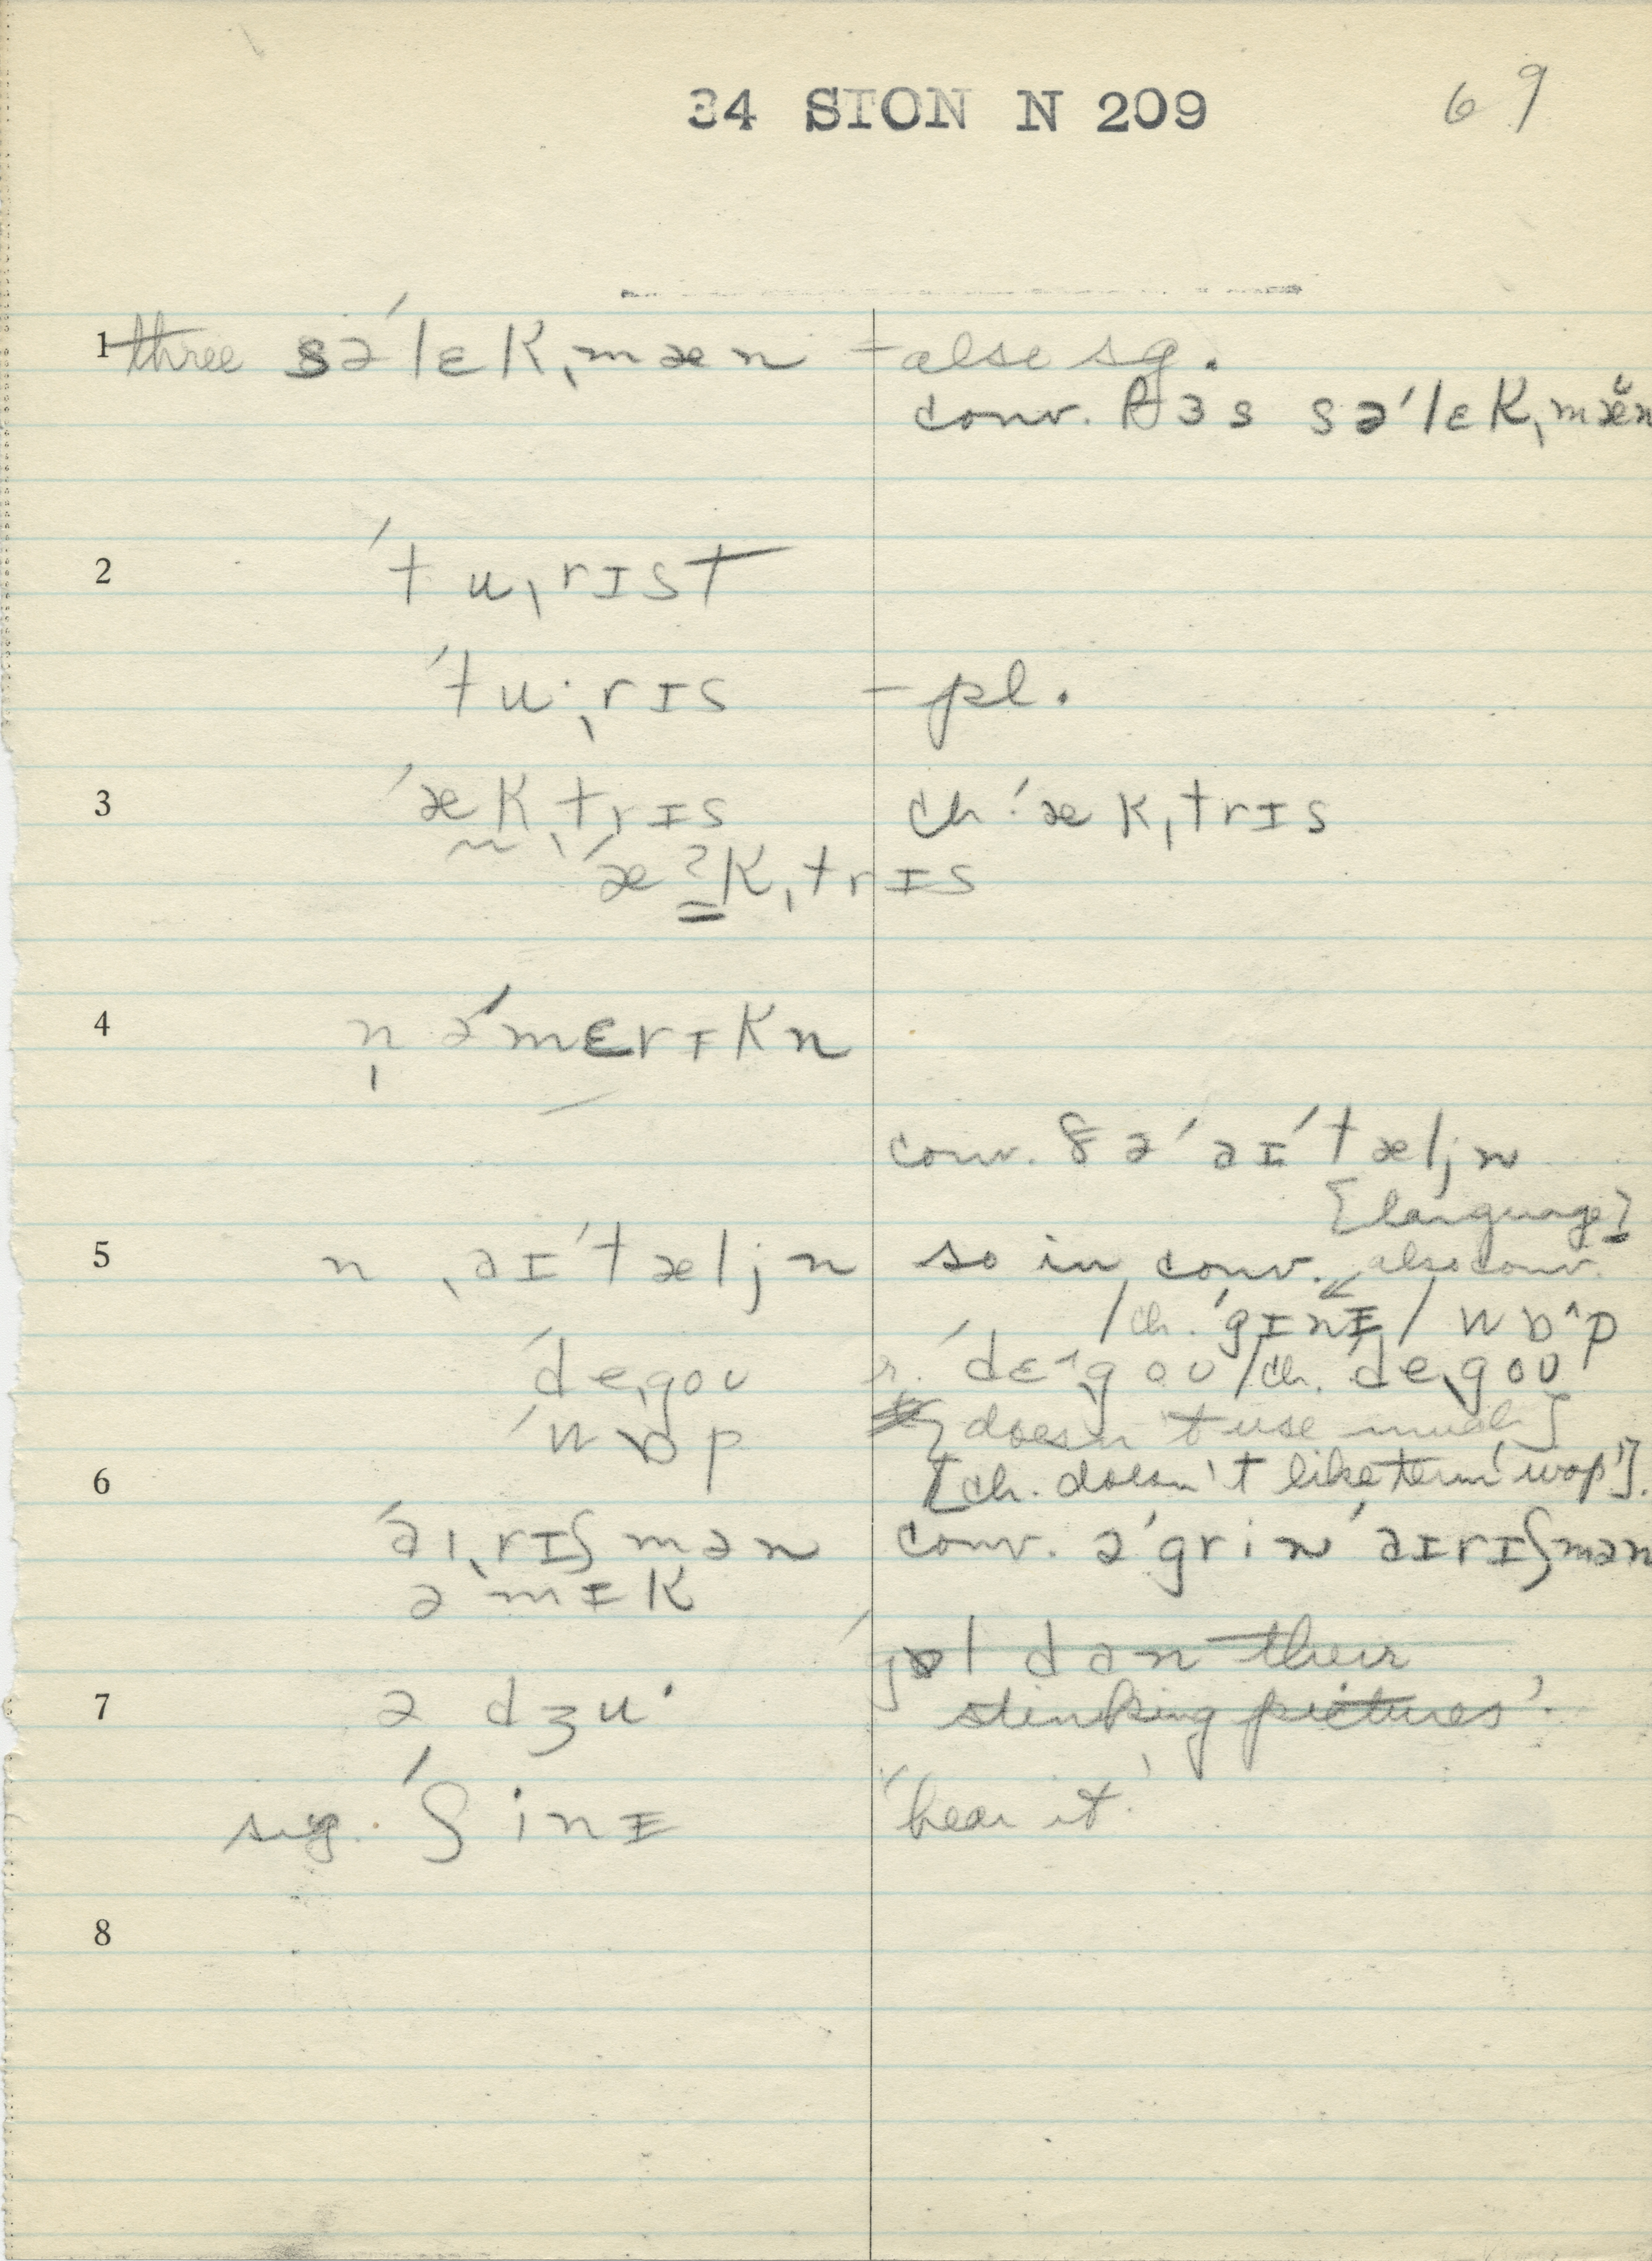 34 SION N 209 69
1 three sə'lɛk,mæn - also sg.
conv. ðɜs sə'lɛk,mæ̆n
2 'tu,rɪst
'tu·,rɪs - pl.
3 'æk,trɪs ch. 'æk,trɪs
~ 'æʔk,trɪs
4 n̩ ə'mɛrɪkn
conv. ðə' əɪ'tæljn
[language]
5 n ,əɪ'tæljn so in conv. also conv.
/ch. 'gɪnɪ/ wɒ^p
'de,gou r. 'dɛ^,goʊ /ch. 'de,goʊ
'wɒp [doesn't use much]
6 [ch. doesn't like term 'wop'].
'əɪ,rɪʃmən conv. ə'grin 'əɪrɪʃmən
ə mɪk
'jɒl dən their
7 ə dʒu· stinking pictures'.
sg. 'ʃinɪ 'hear it'
8